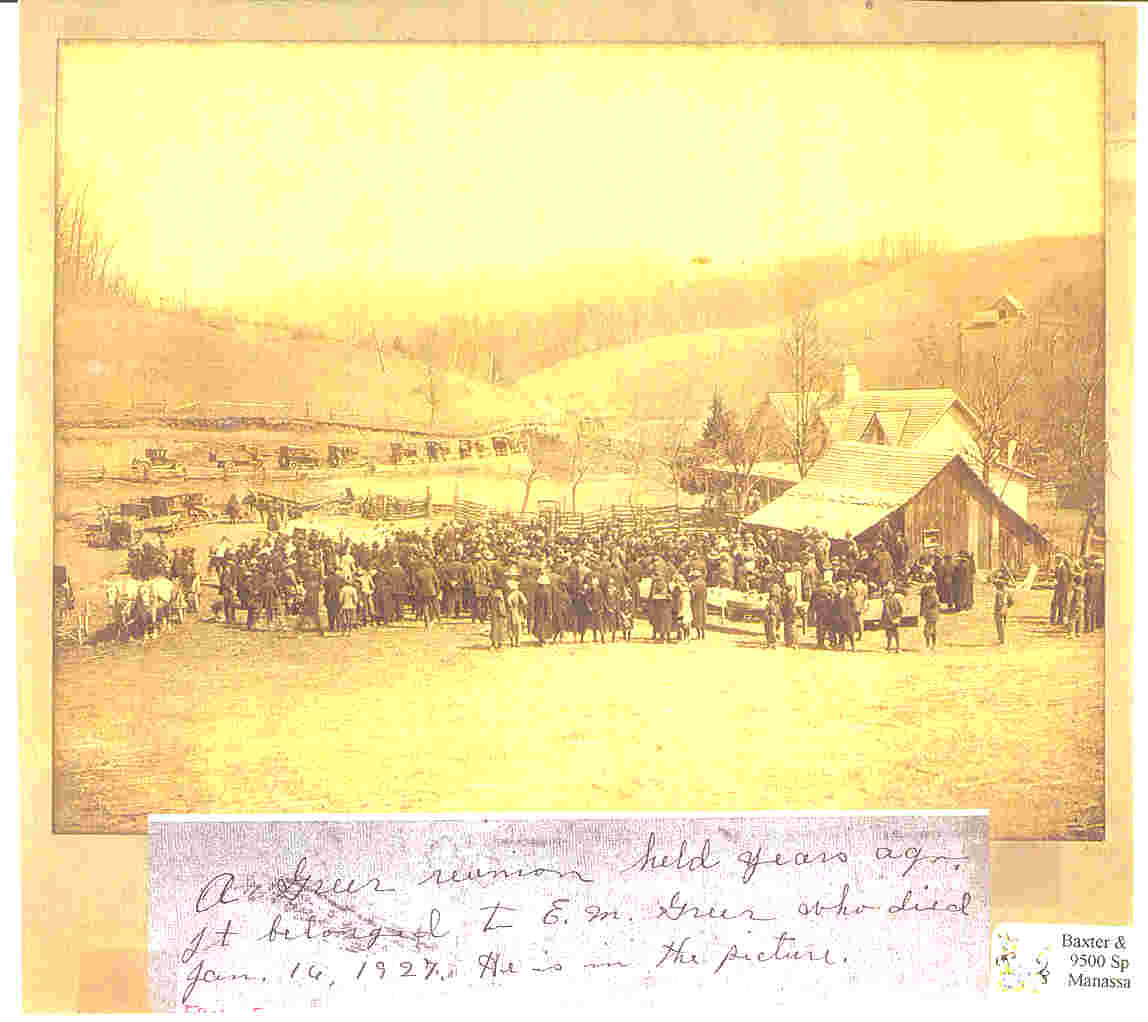 A Greer reunion held years ago.
It belonged to E. M. Greer who died
Jan. 16, 1927. He is in the picture.
Baxter &
9500 Sp
Manassa